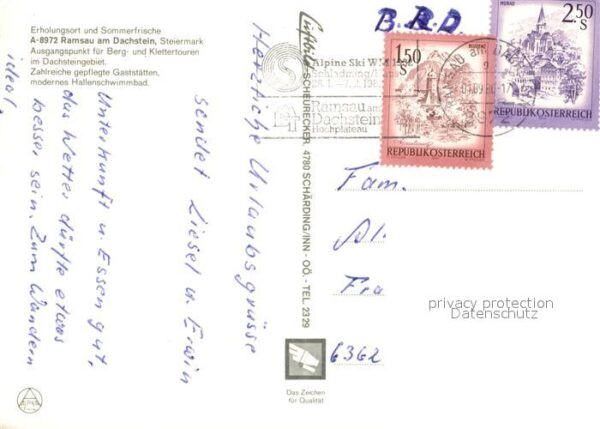 Erholungsort und Sommerfrische
A-8972 Ramsau am Dachstein, Steiermark
Ausgangspunkt für Berg- und Klettertouren
im Dachsteingebiet.
Zahlreiche gepflegte Gaststätten,
modernes Hallenschwimmbad.
Herzliche Urlaubsgrüsse
sendet Liesel u. Erwin
Unterkunft u. Essen gut,
das Wetter dürfte etwas
besser sein. Zum Wandern
ideal.
SCHEURECKER, 4780 SCHÄRDING/INN - OÖ. - TEL. 2329
B.R.D.
Alpine Ski WM
Schladming
Ramsau am
Dachstein
Hochplateau
1.50
S
BLUDENZ
REPUBLIK ÖSTERREICH
MURAU
2.50
S
REPUBLIK ÖSTERREICH
Fam.
Al.
Fra
6362
privacy protection
Datenschutz
Das Zeichen
für Qualität